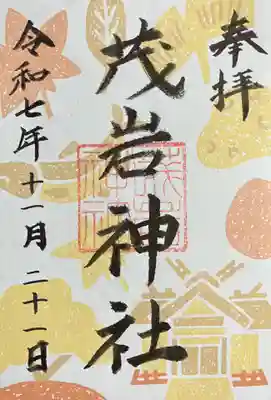 奉拝
茂岩神社
令和七年十一月二十一日